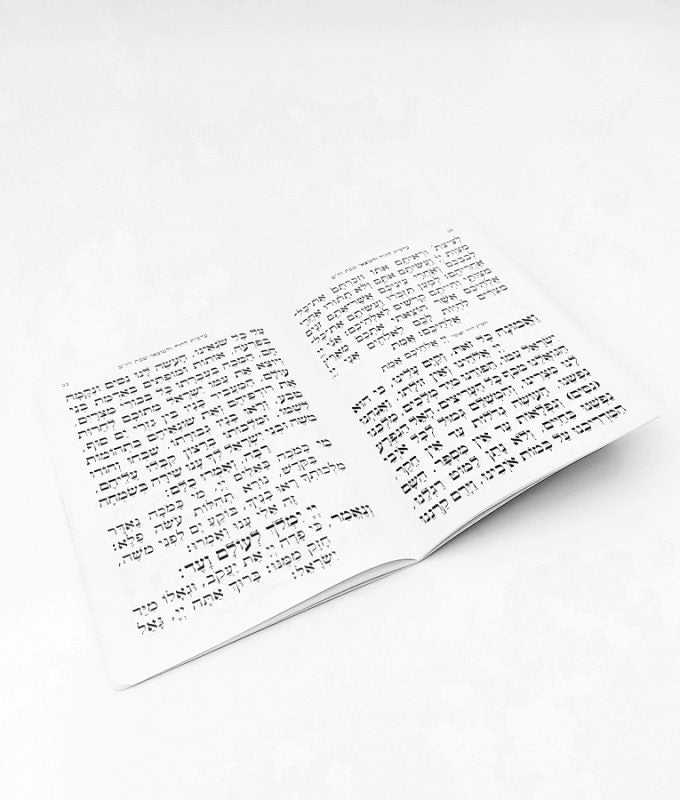 ערבית לחול ולמוצאי שבת קודש
לציצת, וראיתם אתו, וזכרתם את־כל־
מצות יי, ועשיתם אתם, ולא תתורו אחרי
לבבכם ואחרי עיניכם אשר־אתם זנים
אחריהם: למען תזכרו ועשיתם את־כל־
מצותי, והייתם קדשים לאלהיכם: אני יי
אלהיכם, אשר הוצאתי אתכם מארץ
מצרים, להיות לכם לאלהים, אני יי
אלהיכם: אמת
יי אלהיכם אמת
וֶאֱמוּנָה כָּל זֹאת, וְקַיָּם עָלֵינוּ, כִּי הוּא
יְיָ אֱלֹהֵינוּ וְאֵין זוּלָתוֹ, וַאֲנַחְנוּ
יִשְׂרָאֵל עַמּוֹ. הַפּוֹדֵנוּ מִיַּד מְלָכִים, מַלְכֵּנוּ
הַגּוֹאֲלֵנוּ מִכַּף כָּל הֶעָרִיצִים. הָאֵל הַנִּפְרָע
לָנוּ מִצָּרֵינוּ, וְהַמְשַׁלֵּם גְּמוּל לְכָל אֹיְבֵי
נַפְשֵׁנוּ, הָעֹשֶׂה גְדֹלוֹת עַד אֵין חֵקֶר,
(נִסִּים) וְנִפְלָאוֹת עַד אֵין מִסְפָּר. הַשָּׂם
נַפְשֵׁנוּ בַּחַיִּים, וְלֹא נָתַן לַמּוֹט רַגְלֵנוּ,
הַמַּדְרִיכֵנוּ עַל בָּמוֹת אֹיְבֵינוּ, וַיָּרֶם קַרְנֵנוּ
ערבית לחול ולמוצאי שבת קודש
עַל כָּל שׂנְאֵינוּ, הָעֹשֶׂה לָּנוּ נִסִּים וּנְקָמָה
בְּפַרְעֹה, אוֹתוֹת וּמוֹפְתִים בְּאַדְמַת בְּנֵי
חָם, הַמַּכֶּה בְעֶבְרָתוֹ כָּל בְּכוֹרֵי מִצְרָיִם,
וַיּוֹצֵא אֶת עַמּוֹ יִשְׂרָאֵל מִתּוֹכָם לְחֵרוּת
עוֹלָם. הַמַּעֲבִיר בָּנָיו בֵּין גִּזְרֵי יַם סוּף,
אֶת רוֹדְפֵיהֶם וְאֶת שׂוֹנְאֵיהֶם בִּתְהוֹמוֹת
טִבַּע, וְרָאוּ בָנָיו גְּבוּרָתוֹ, שִׁבְּחוּ וְהוֹדוּ
לִשְׁמוֹ, וּמַלְכוּתוֹ בְּרָצוֹן קִבְּלוּ עֲלֵיהֶם,
מֹשֶׁה וּבְנֵי יִשְׂרָאֵל לְךָ עָנוּ שִׁירָה בְּשִׂמְחָה
רַבָּה, וְאָמְרוּ כֻלָּם:
מִי כָמֹכָה בָּאֵלִם יְיָ, מִי כָּמֹכָה נֶאְדָּר
בַּקֹּדֶשׁ, נוֹרָא תְהִלֹּת עֹשֵׂה פֶלֶא:
מַלְכוּתְךָ רָאוּ בָנֶיךָ, בּוֹקֵעַ יָם לִפְנֵי מֹשֶׁה,
זֶה אֵלִי עָנוּ וְאָמְרוּ:
יְיָ יִמְלֹךְ לְעוֹלָם וָעֶד.
וְנֶאֱמַר, כִּי פָדָה יְיָ אֶת יַעֲקֹב, וּגְאָלוֹ מִיַּד
חָזָק מִמֶּנּוּ. בָּרוּךְ אַתָּה יְיָ, גָּאַל
יִשְׂרָאֵל: